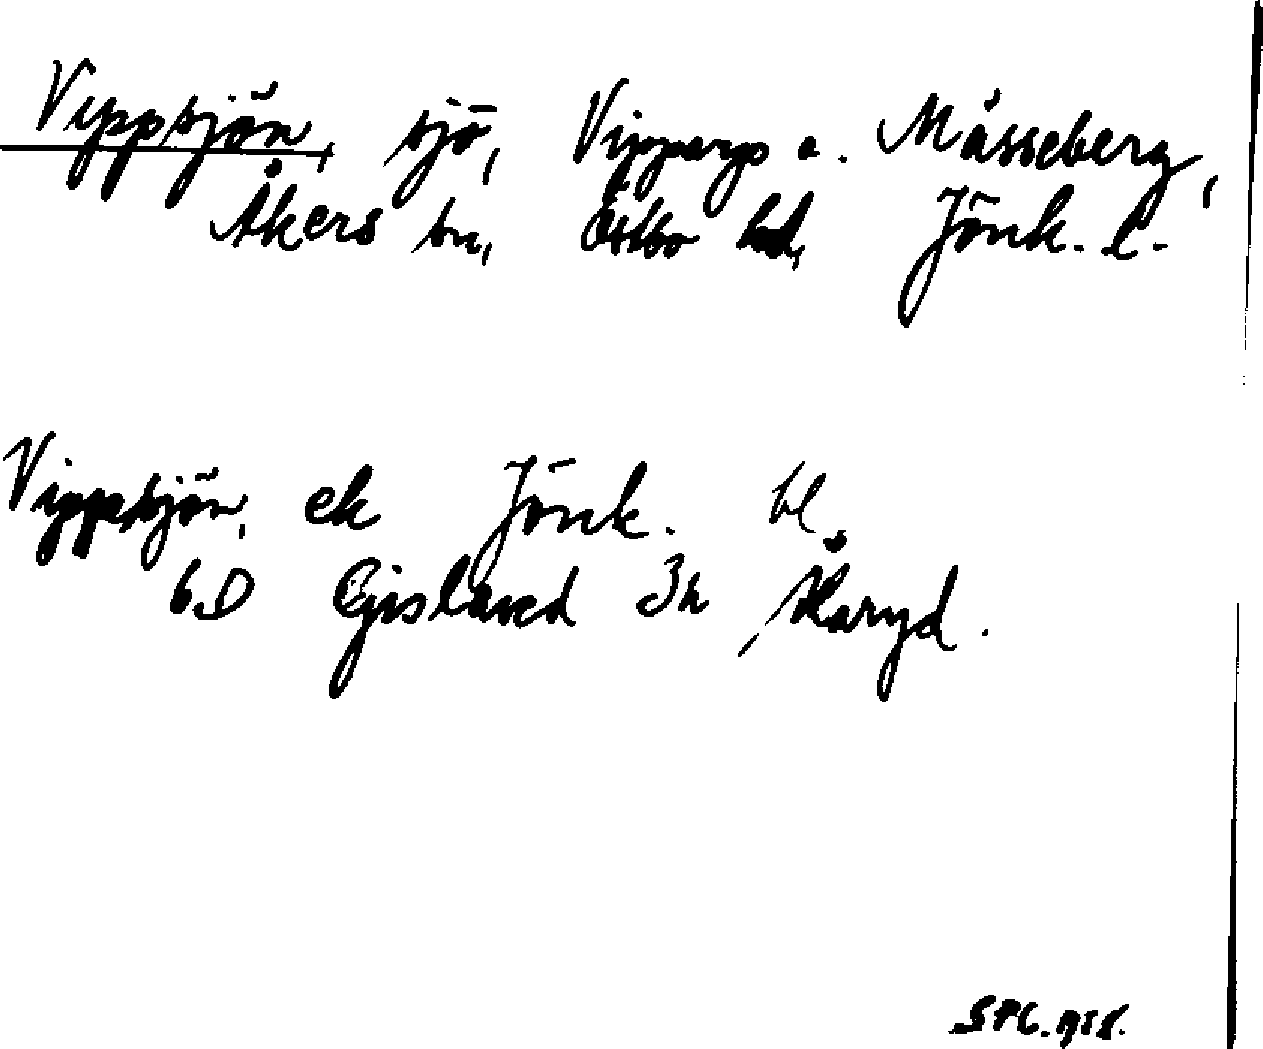 Vippsjön, sjö, Vipparp o. Måsseberg,
Åkers sn, Östbo hd, Jönk. l.
Vippsjön, ek Jönk. bl.
6D Gislaved 3h Åkaryd.